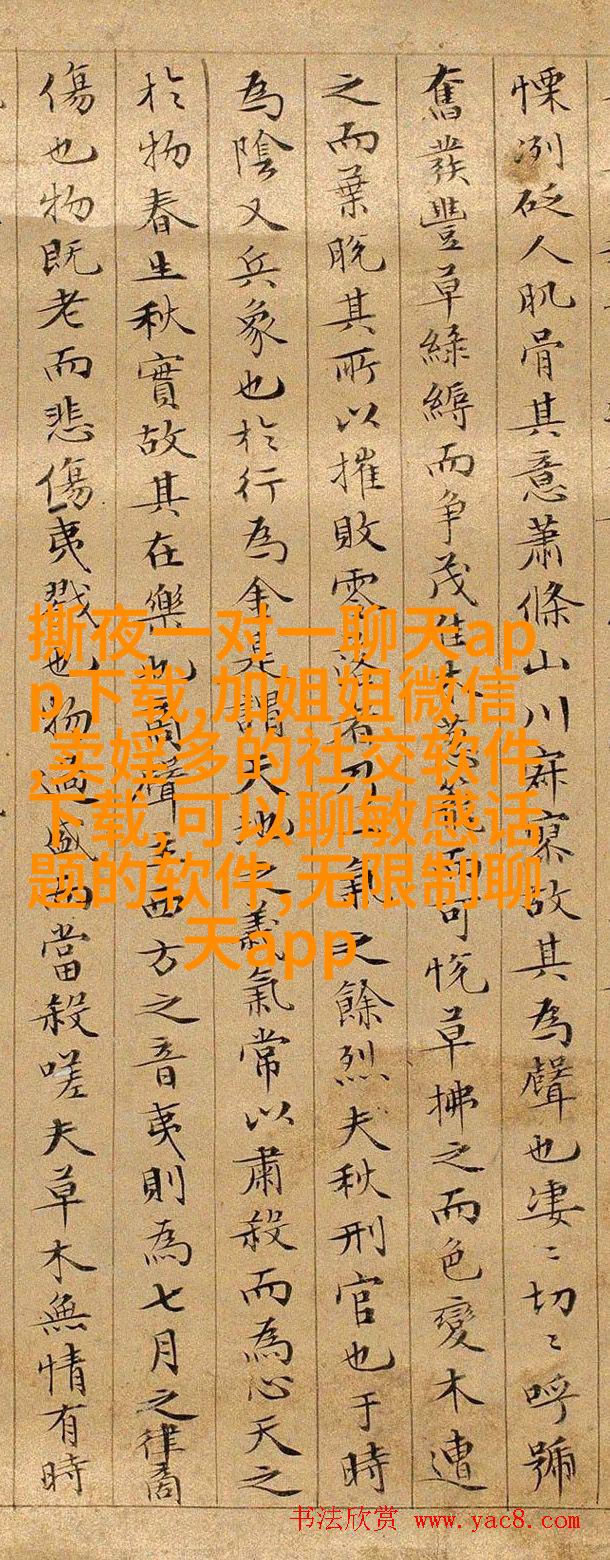 慄冽砭人肌骨其意蕭條山川寂寥故其為聲也凄〻切〻呼號
奮發豐草綠縟而争茂佳木葱蘢而可悅草拂之而色變木遭
之而葉脫其所以摧敗零落者乃一氣之餘烈夫秋刑官也于時
為陰又兵象也於行為金是謂天地之義氣常以肅殺而為心天之
於物春生秋實故其在樂也商聲主西方之音夷則為七月之律商
傷也物既老而悲傷夷戮也物過盛而當殺嗟夫草木無情有時
撕夜一对一聊天ap
p下载,加姐姐微信
,卖婬多的社交软件
下载,可以聊敏感话
题的软件,无限制聊
天app
书法欣赏 www.yac8.com